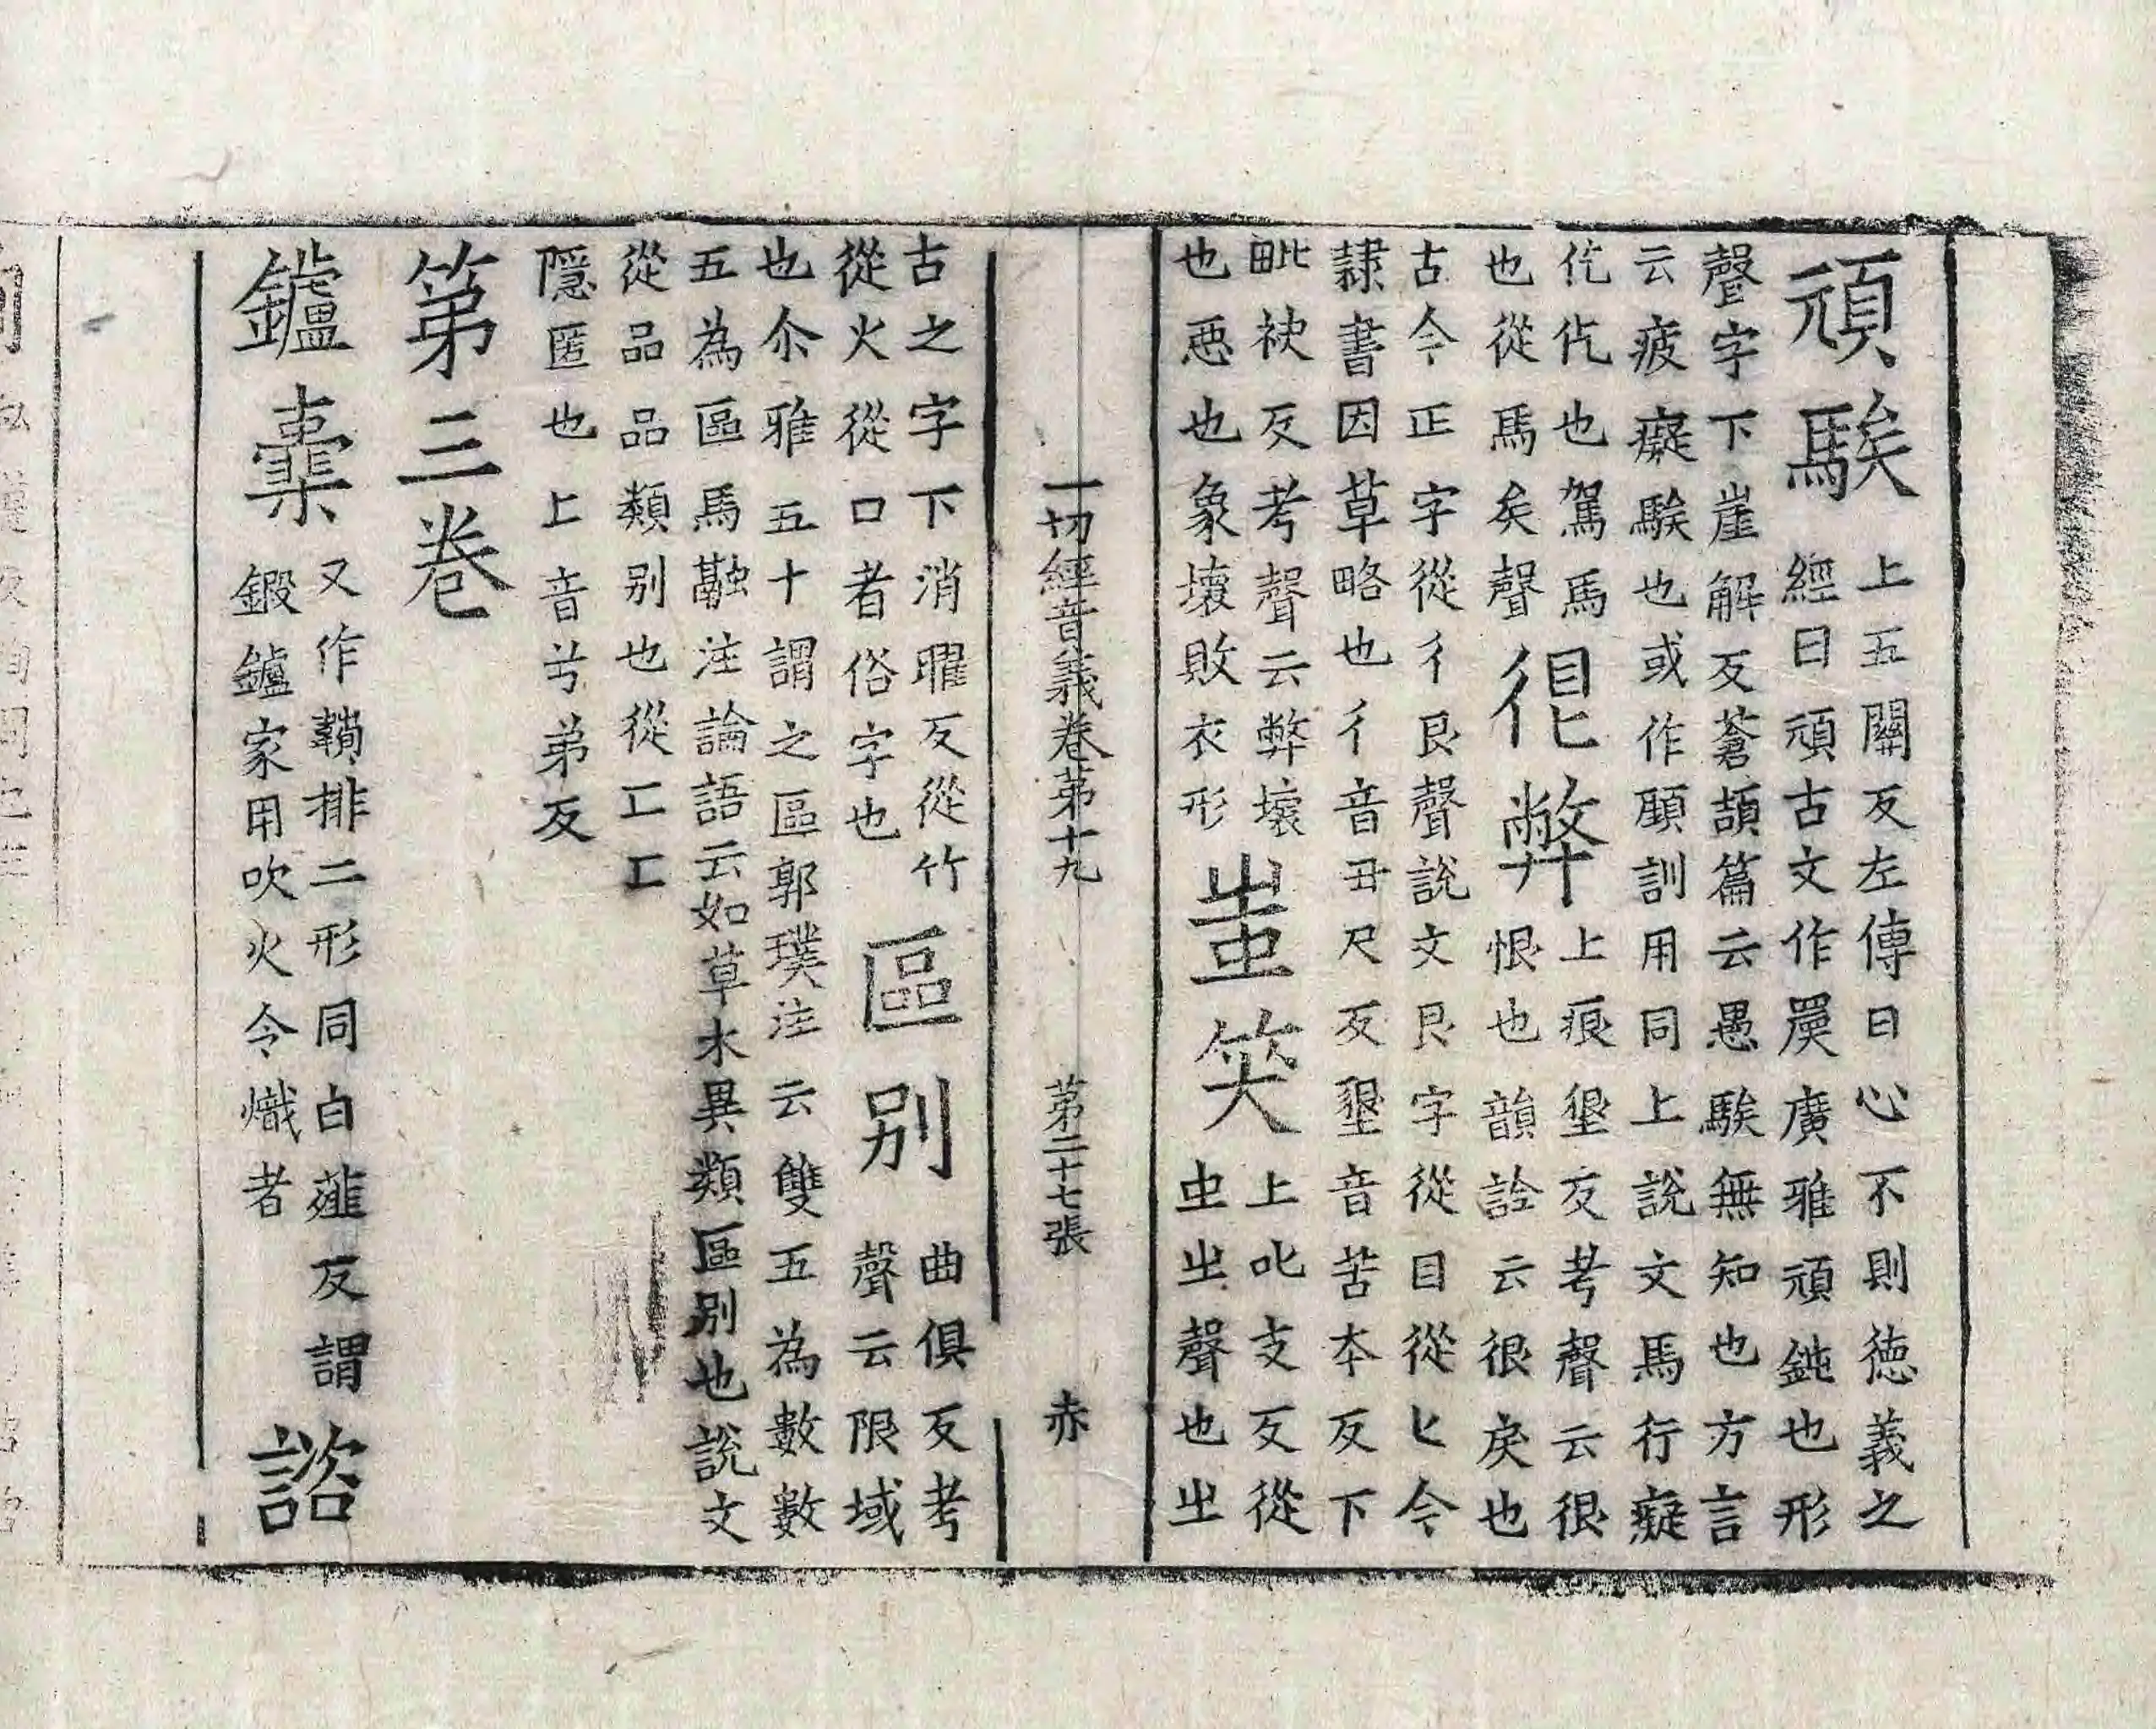 頑騃 上五關反左傳曰心不則徳義之
經曰頑古文作𡚤廣雅頑鈍也形
聲字下崖解反蒼頡篇云愚騃無知也方言
云疲癡騃也或作顧訓用同上說文馬行癡
仡仡也駕馬 很弊 上痕垦反考聲云很
也從馬矣聲 恨也韻詮云很戾也
古今正字從彳艮聲說文艮字從目從匕今
隷書因草略也彳音丑尺反墾音苦本反下
毗袂反考聲云弊壞 蚩笑 上叱支反從
也惡也象壞敗衣形 虫㞢聲也㞢
一切經音義卷第十九 第二十七張 赤
古之字下消曜反從竹 區别 曲俱反考
從火從口者俗字也 聲云限域
也尒雅五十謂之區郭璞注云雙五為數數
五為區馬融注論語云如草木異類區别也說文
從品品類别也從匸匸
隱匿也上音兮弟反
第三卷
鑪橐 又作鞴排二形同白薤反謂 諮
鍛鑪家用吹火令熾者